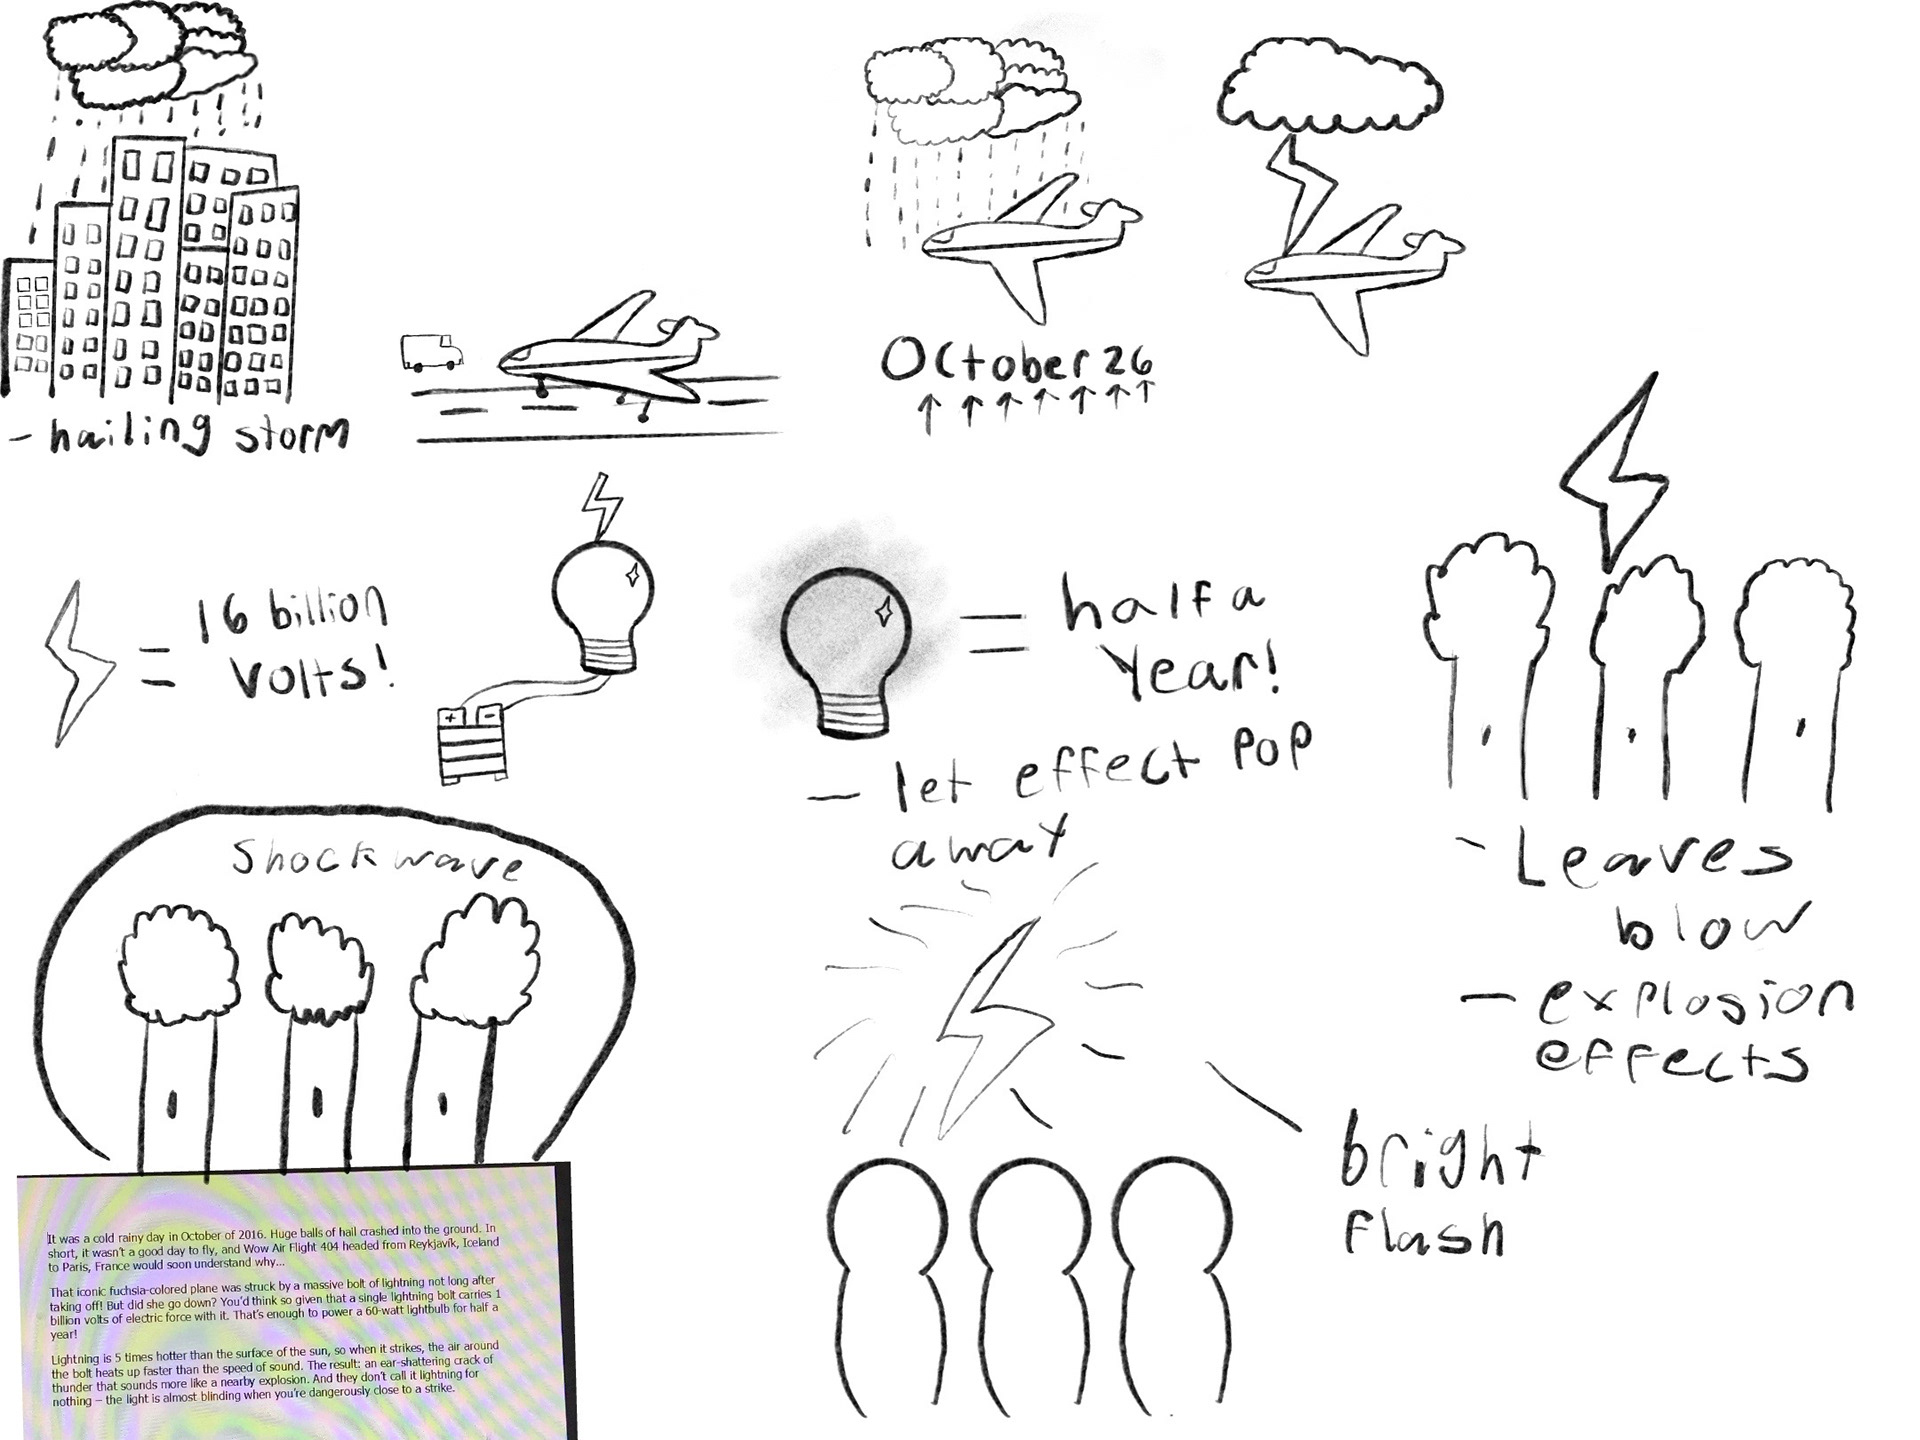 - hailing storm
October 26
= 16 billion
volts!
+ -
= half a
year!
- let effect pop
away
- Leaves
blow
- explosion
effects
Shockwave
bright
flash
It was a cold rainy day in October of 2016. Huge balls of hail crashed into the ground. In
short, it wasn't a good day to fly, and Wow Air Flight 404 headed from Reykjavík, Iceland
to Paris, France would soon understand why...
That iconic fuchsia-colored plane was struck by a massive bolt of lightning not long after
taking off! But did she go down? You'd think so given that a single lightning bolt carries 1
billion volts of electric force with it. That's enough to power a 60-watt lightbulb for half a
year!
Lightning is 5 times hotter than the surface of the sun, so when it strikes, the air around
the bolt heats up faster than the speed of sound. The result: an ear-shattering crack of
thunder that sounds more like a nearby explosion. And they don't call it lightning for
nothing – the light is almost blinding when you're dangerously close to a strike.